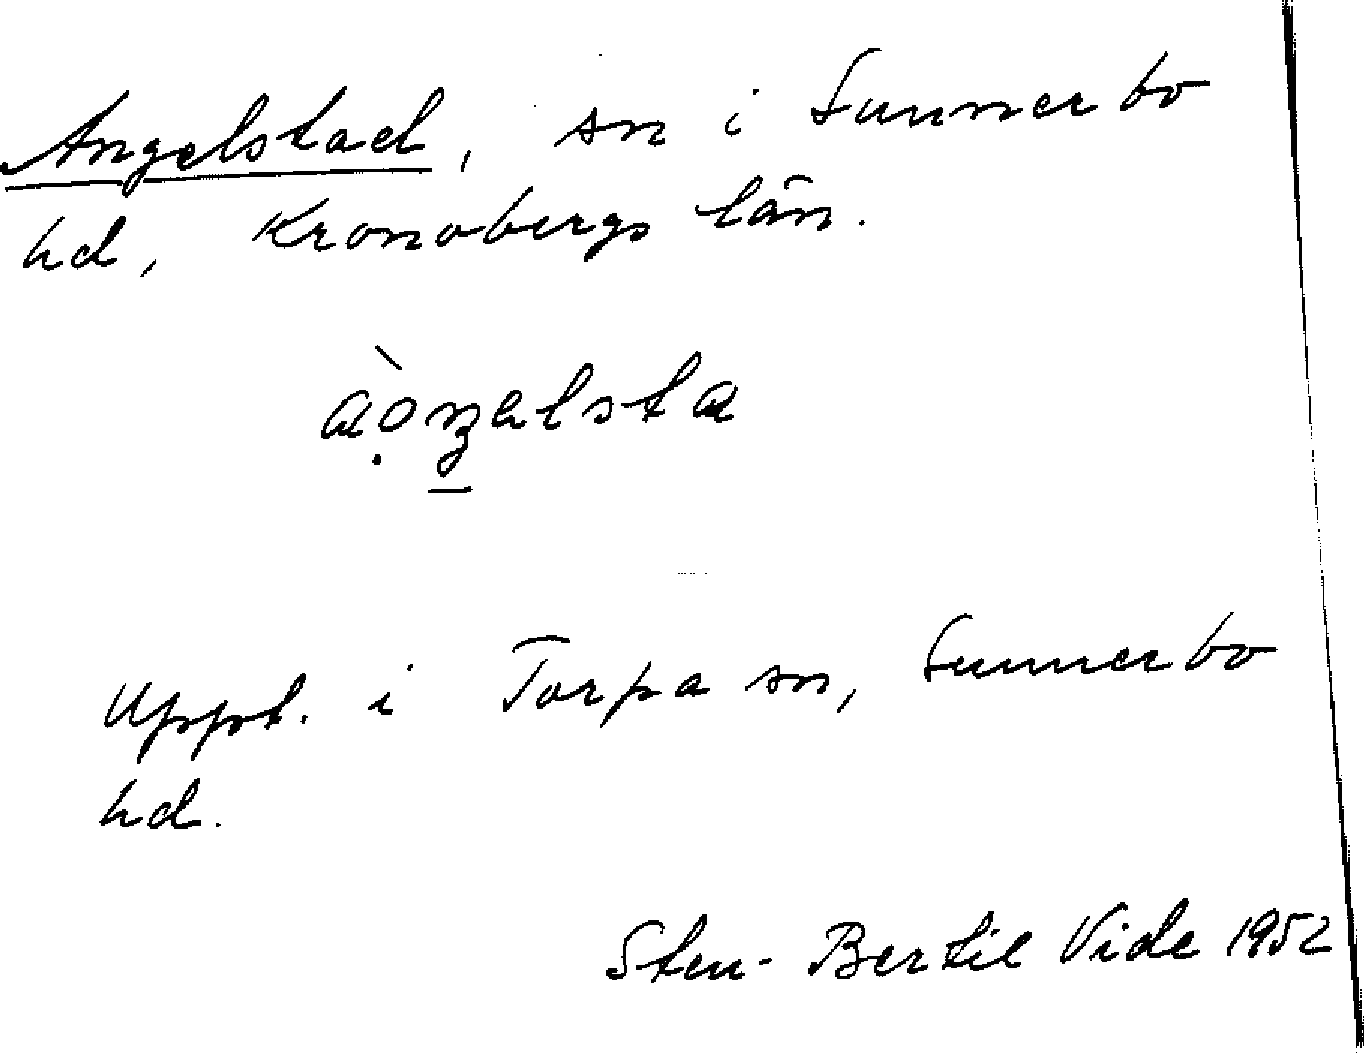 Angelstad, sn i Sunnerbo
hd, Kronobergs län.
Uppt. i Torpa sn, Sunnerbo
hd.
Sten-Bertil Vide 1952